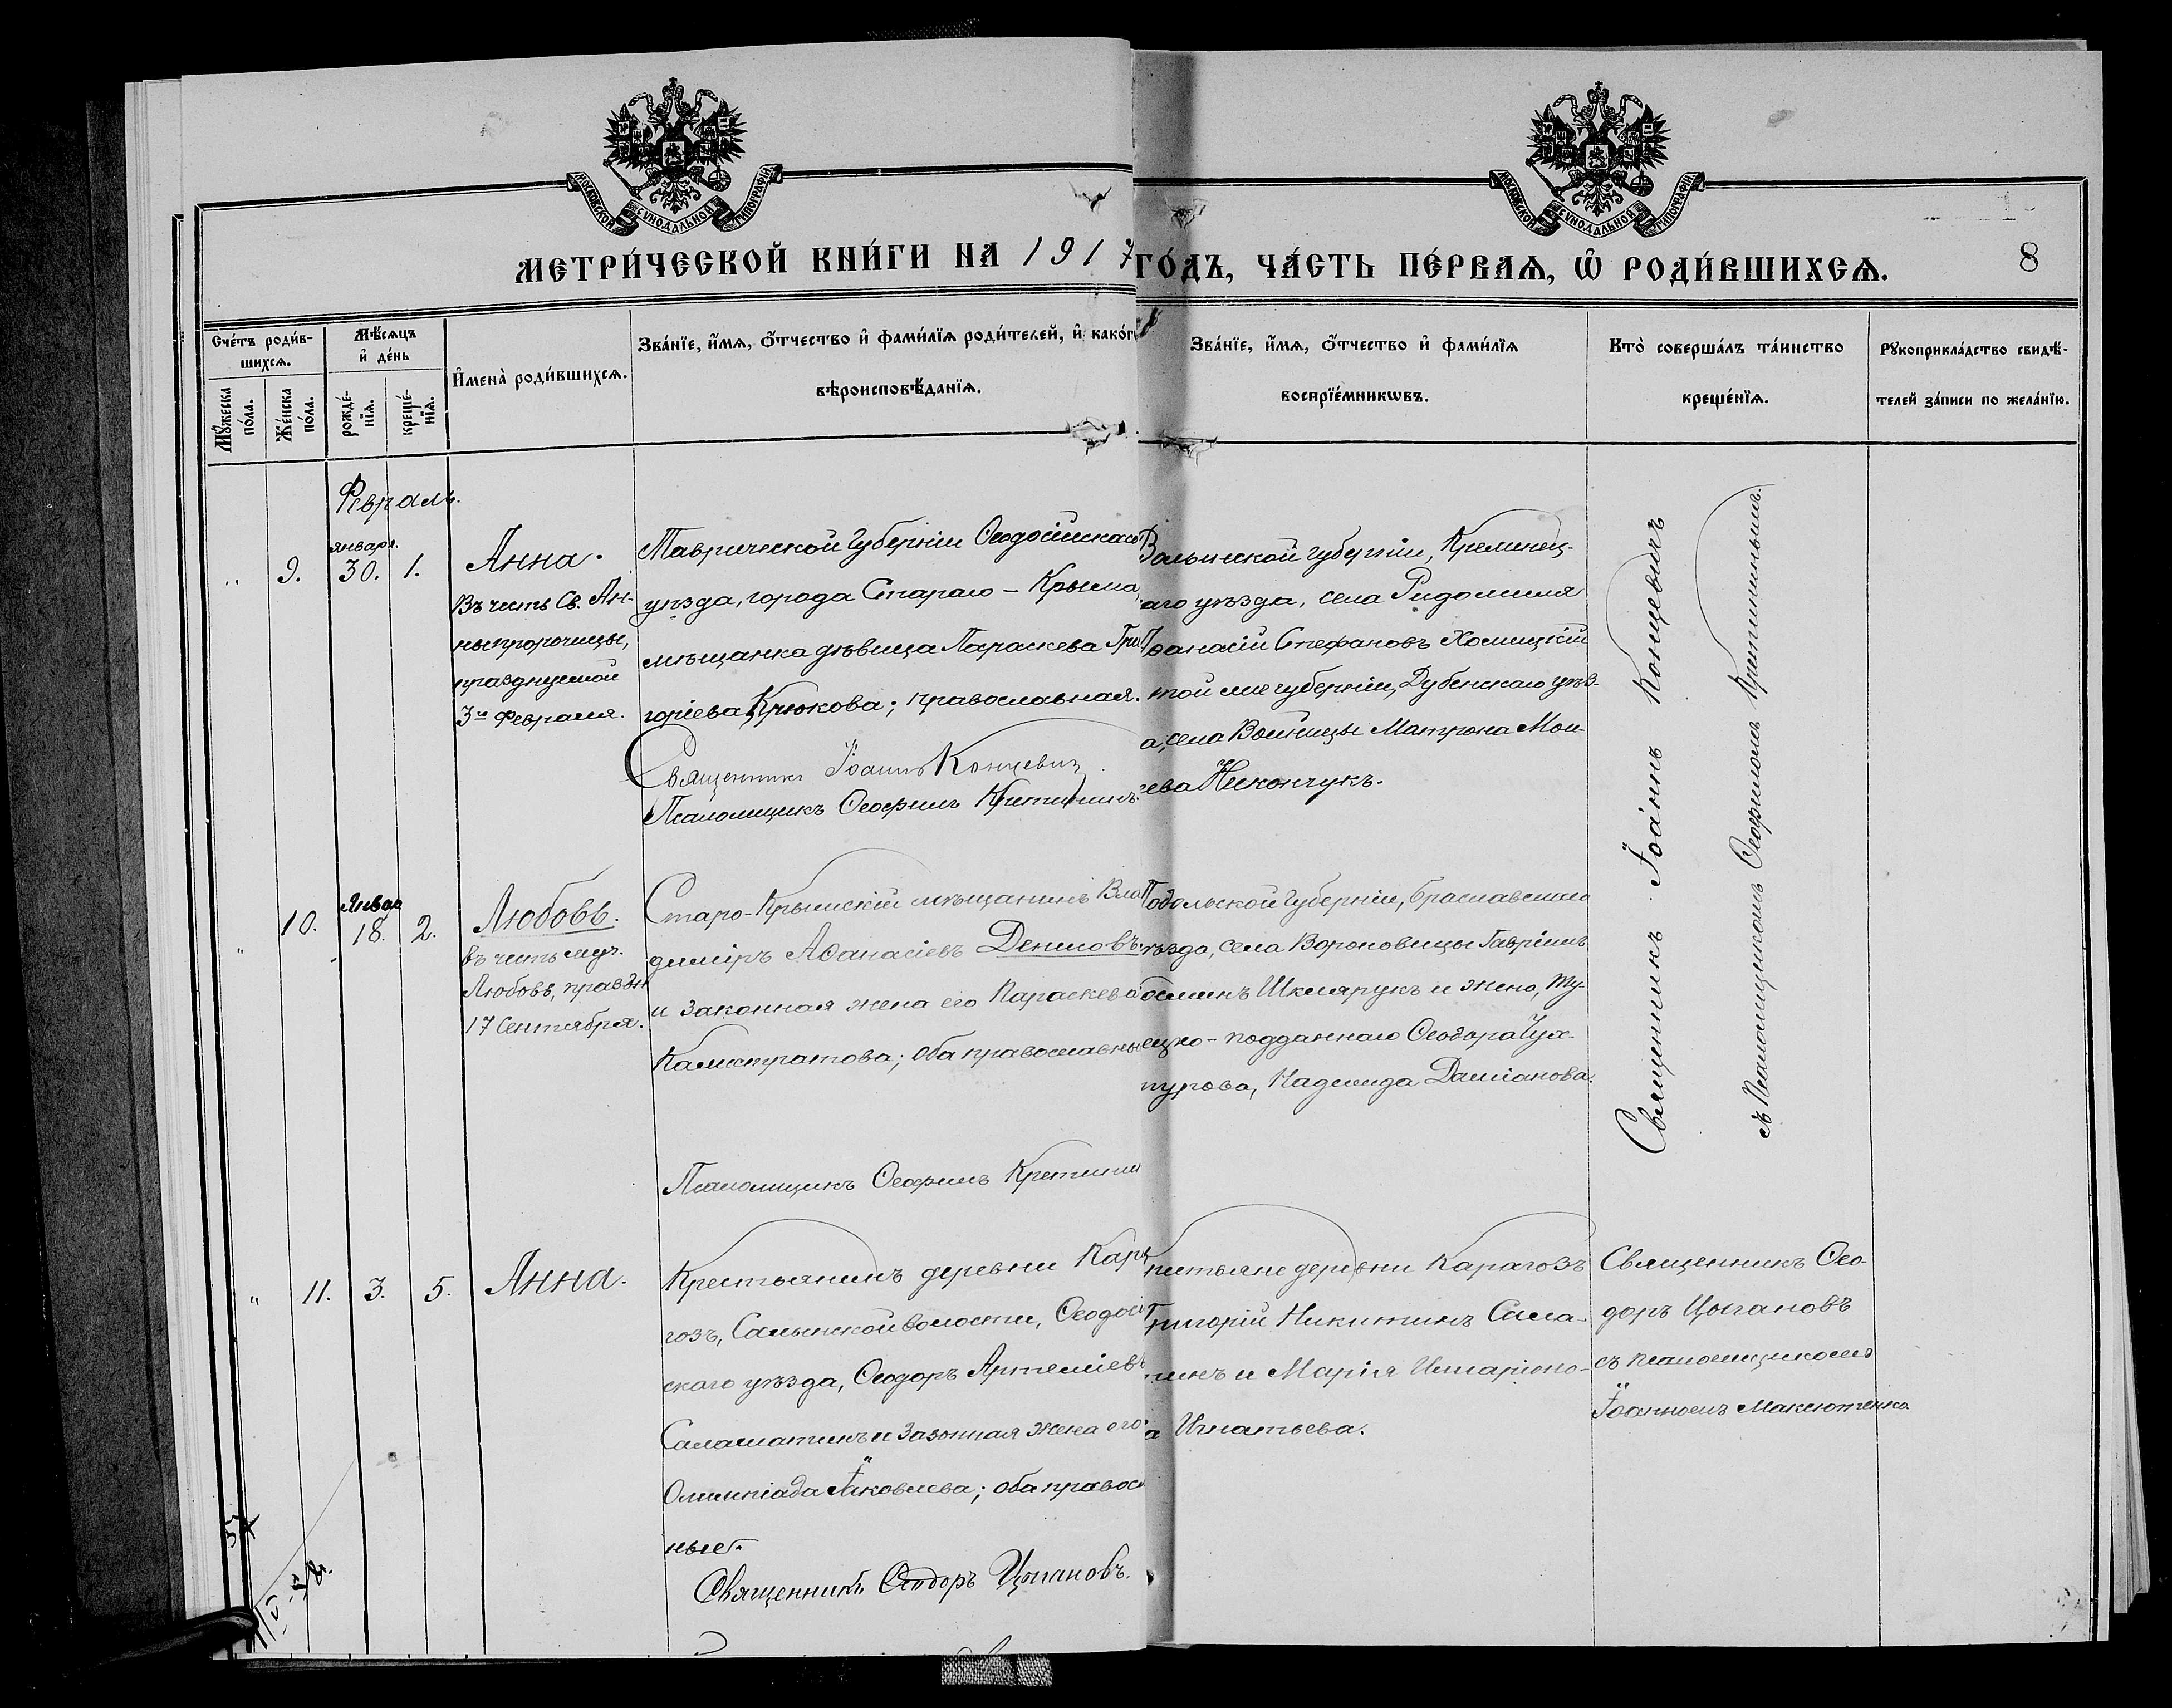 МОСКОВСКОЙ СѴНОДАЛЬНОЙ ТИПОГРАФІИ
МОСКОВСКОЙ СѴНОДАЛЬНОЙ ТИПОГРАФІИ
МЕТРИ́ЧЕСКОЙ КНИ́ГИ НА 1917
ГО́ДЪ, ЧА́СТЬ ПЕ́РВАѦ, Ѿ РОДИ́ВШИХСѦ.
8
Сче́тъ роди́в-
шихсѧ.
Мꙋ́жеска
по́ла.
Же́нска
по́ла.
Мѣ́сѧцъ
и҆ де́нь
рожде́-
нїѧ.
креще́-
нїѧ.
И҆мена̀ роди́вшихсѧ.
Зва́нїе, и҆́мѧ, ѻ҆́тчество и҆ фами́лїѧ роди́телей, и҆ како́г
вѣроисповѣ́данїѧ.
Зва́нїе, и҆́мѧ, ѻ҆́тчество и҆ фами́лїѧ
воспрїе́мникѡвъ.
Кто̀ соверша́лъ та́инство
креще́нїѧ.
Рꙋкоприкла́дство свидѣ́-
телей за́писи по жела́нїю.
Февраль.
„ 9.
января.
30. 1.
Анна.
Въ честь Св. Ан-
ны пророчицы,
празднуемой
3го Февраля.
Таврической Губерніи Ѳеодосійскаго
уѣзда, города Стараго-Крыма,
мѣщанка дѣвица Параскева Гри-
горіева Крюкова; православная.
Священникъ Іоаннъ Концевич
Псаломщикъ Ѳеофилъ Кретининъ.
Волынской губерніи, Кременец-
аго уѣзда, села Ридомиля
Аѳанасій Стефановъ Хомицкій
той же губерніи, Дубенскаго уѣз-
а, села Войницы Матрона Мои-
ева Никончукъ.
Священникъ Іоаннъ Концевичъ
съ Псаломщикомъ Ѳеофиломъ Кретининымъ.
„ 10.
Январ
18. 2.
Любовь.
Въ честь муч.
Любовь, праздн
17 Сентября.
Старо-Крымскій мѣщанинъ Вла
диміръ Аѳанасіевъ Денисовъ
и законная жена его Параскева
Калистратова; оба православны
Псаломщикъ Ѳеофилъ Кретини
Подольской Губерніи, Брацлавскаго
уѣзда, села Вороновицы Гавріилъ
Шклярукъ и жена, Ту-
ецко-подданнаго Ѳеодора Чух-
пурова, Надежда Даміанова.
„ 11. 3. 5.
Анна.
Крестьянинъ деревни Кара
гозъ, Салынской волости, Ѳеодосій
скаго уѣзда, Ѳеодоръ Артеміевъ
Саламатинъ и законная жена его
Олимпіада Іаковлева; оба правос
ные.
Священникъ Ѳеодоръ Цыгановъ.
рестьяне деревни Карагозъ
Григорій Никитинъ Сала-
тинъ и Марія Иларіоно-
а Игнатьева.
Священникъ Ѳео-
доръ Цыгановъ
съ псаломщикомъ
Іоанномъ Максютенко